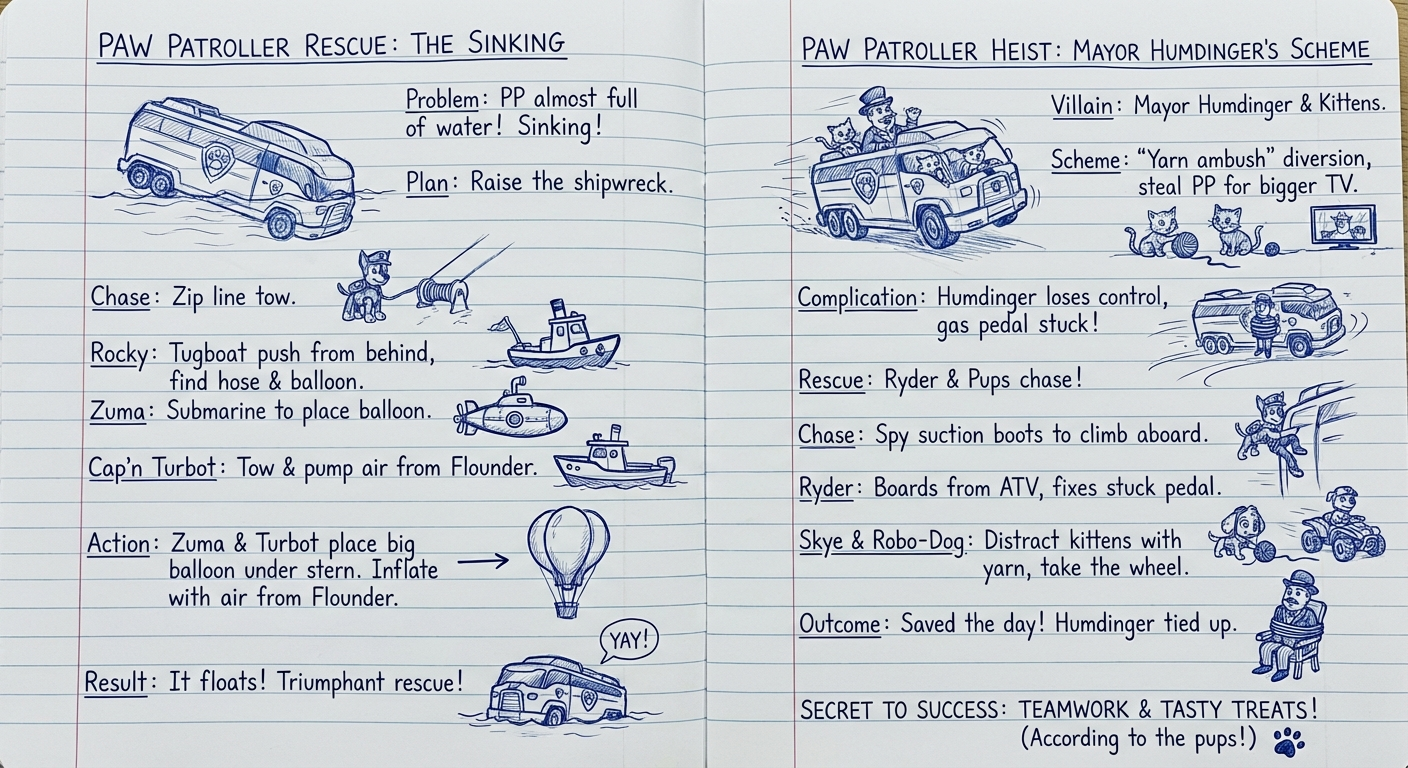 PAW PATROLLER RESCUE: THE SINKING
Problem: PP almost full
of water! Sinking!
Plan: Raise the shipwreck.
Chase: Zip line tow.
Rocky: Tugboat push from behind,
find hose & balloon.
Zuma: Submarine to place balloon.
Cap'n Turbot: Tow & pump air from Flounder.
Action: Zuma & Turbot place big
balloon under stern. Inflate
with air from Flounder.
YAY!
Result: It floats! Triumphant rescue!
PAW PATROLLER HEIST: MAYOR HUMDINGER'S SCHEME
Villain: Mayor Humdinger & Kittens.
Scheme: "Yarn ambush" diversion,
steal PP for bigger TV.
Complication: Humdinger loses control,
gas pedal stuck!
Rescue: Ryder & Pups chase!
Chase: Spy suction boots to climb aboard.
Ryder: Boards from ATV, fixes stuck pedal.
Skye & Robo-Dog: Distract kittens with
yarn, take the wheel.
Outcome: Saved the day! Humdinger tied up.
SECRET TO SUCCESS: TEAMWORK & TASTY TREATS!
(According to the pups!)